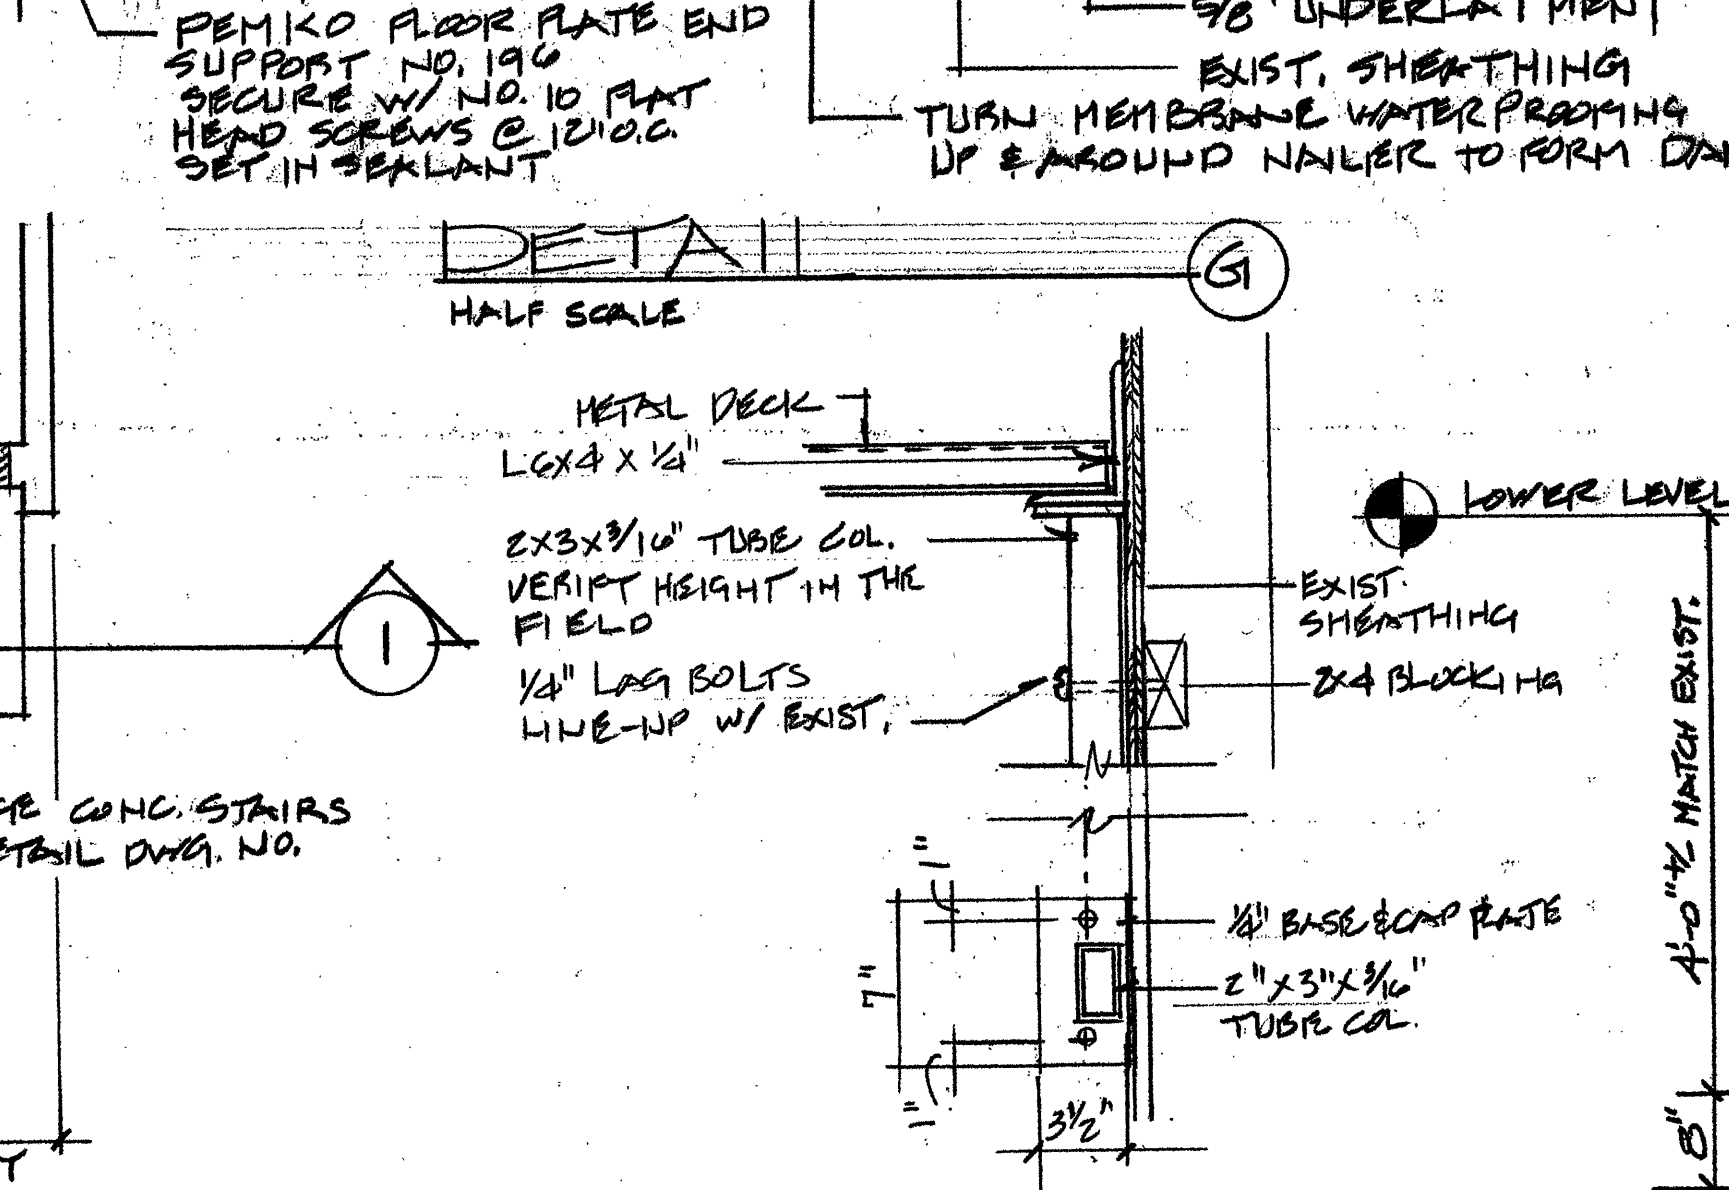 PEMKO FLOOR PLATE END
SUPPORT NO. 196
SECURE W/ NO. 10 FLAT
HEAD SCREWS @ 12" O.C.
SET IN SEALANT
5/8" UNDERLAYMENT
EXIST. SHEATHING
TURN MEMBRANE WATERPROOFING
UP & AROUND NAILER TO FORM
DETAIL
G
HALF SCALE
METAL DECK
L6X4 X 1/4"
2X3X3/16" TUBE COL.
VERIFY HEIGHT IN THE
FIELD
1/4" LAG BOLTS
LINE-UP W/ EXIST.
LOWER LEVEL
EXIST.
SHEATHING
2X4 BLOCKING
1
CONC. STAIRS
DWG. NO.
1"
7"
1"
3 1/2"
1/4" BASE & CAP PLATE
2" X 3" X 3/16"
TUBE COL.
4'-0" +/- MATCH EXIST.
8"